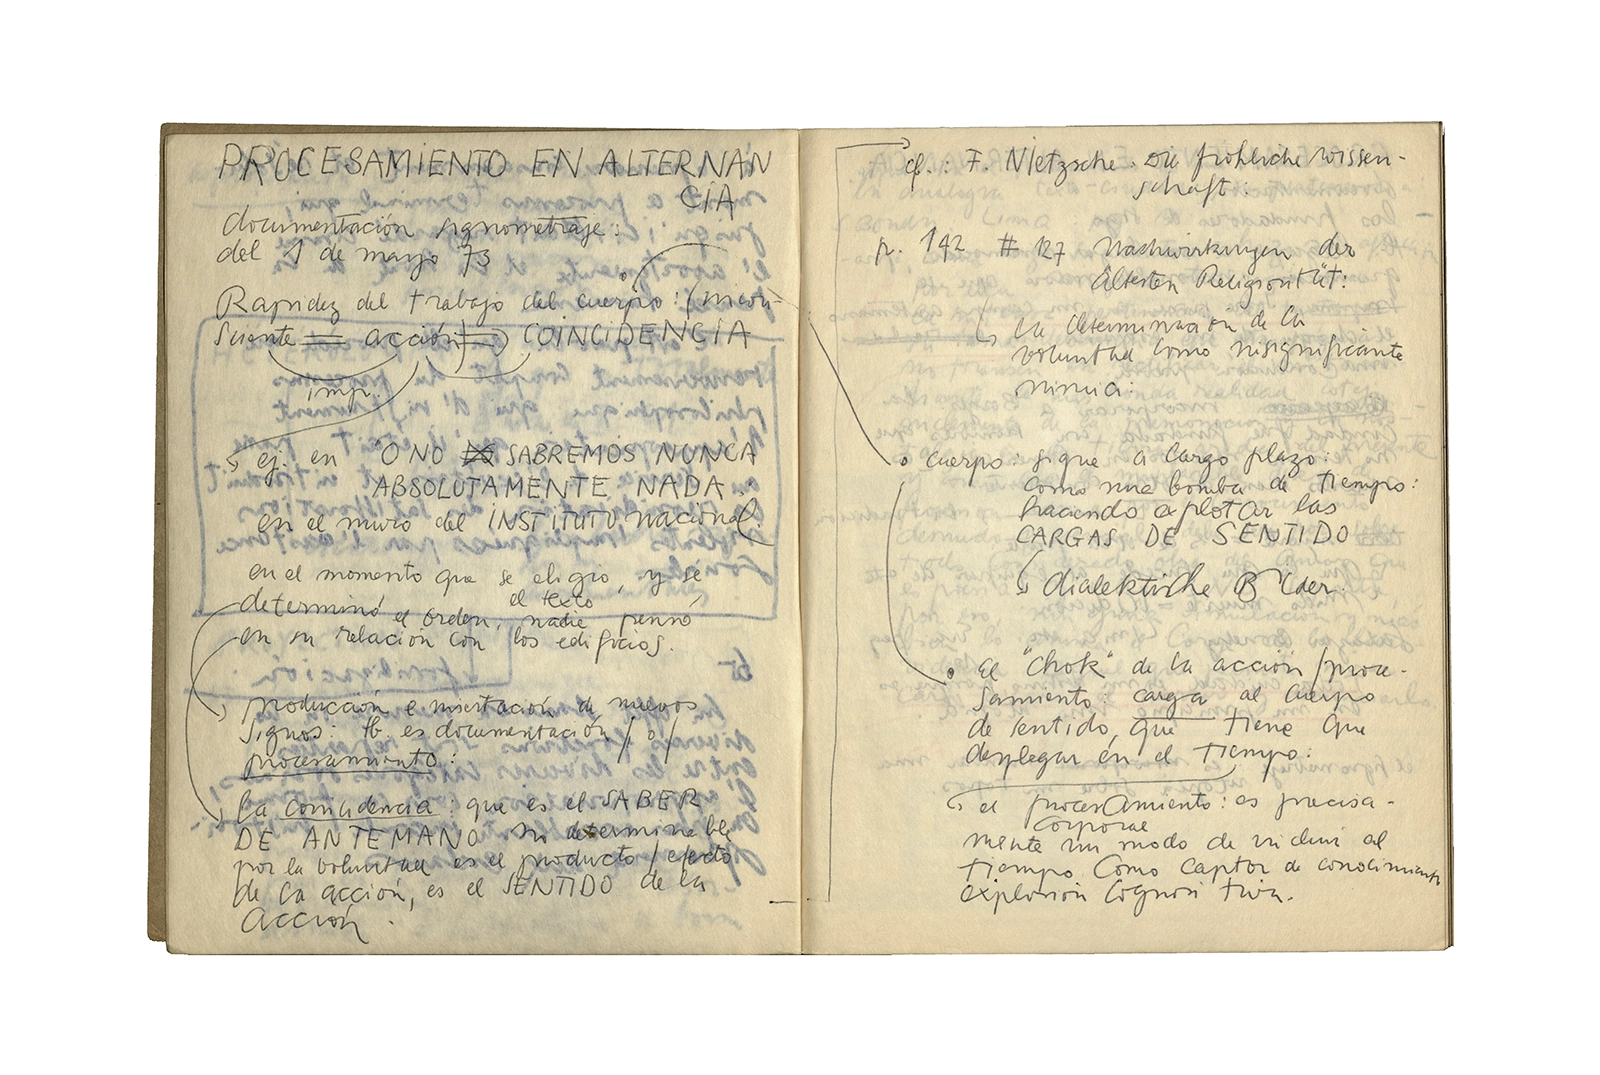 PROCESAMIENTO EN ALTERNAN
CIA
documentación signometraje:
del 1 de mayo 73
Rapidez del trabajo del cuerpo: (incon-
sciente = acción COINCIDENCIA
impr.
ej. en O NO SABREMOS NUNCA
ABSOLUTAMENTE NADA.
en el muro del INSTITUTO nacional.
en el momento que se eligio, y se
el texto
determinó el orden, nadie pensó
en su relación con los edificios.
producción e insertación de nuevos
signos: tb. es documentación / o /
procesamiento:
la coincidencia: que es el SABER
DE ANTEMANO no determinable
por la voluntad es el producto / efecto
de la acción, es el SENTIDO de la
acción.
cf.: F. Nietzsche. Die fröhliche Wissen-
schaft:
p. 142 # 127 Nachwirkungen der
Ältesten Religiosität:
la determinacion de la
voluntad como insignificante
mimica:
cuerpo: sigue a largo plazo:
como una bomba de tiempo:
haciendo explotar las
CARGAS DE SENTIDO
dialektische Bilder.
el "chok" de la acción / proce-
samiento: carga al cuerpo
de sentido, que tiene que
desplegar en el tiempo:
el procesamiento: es precisa-
corporal
mente un modo de incluir al
tiempo como captor de conocimiento
explosión cognositiva.